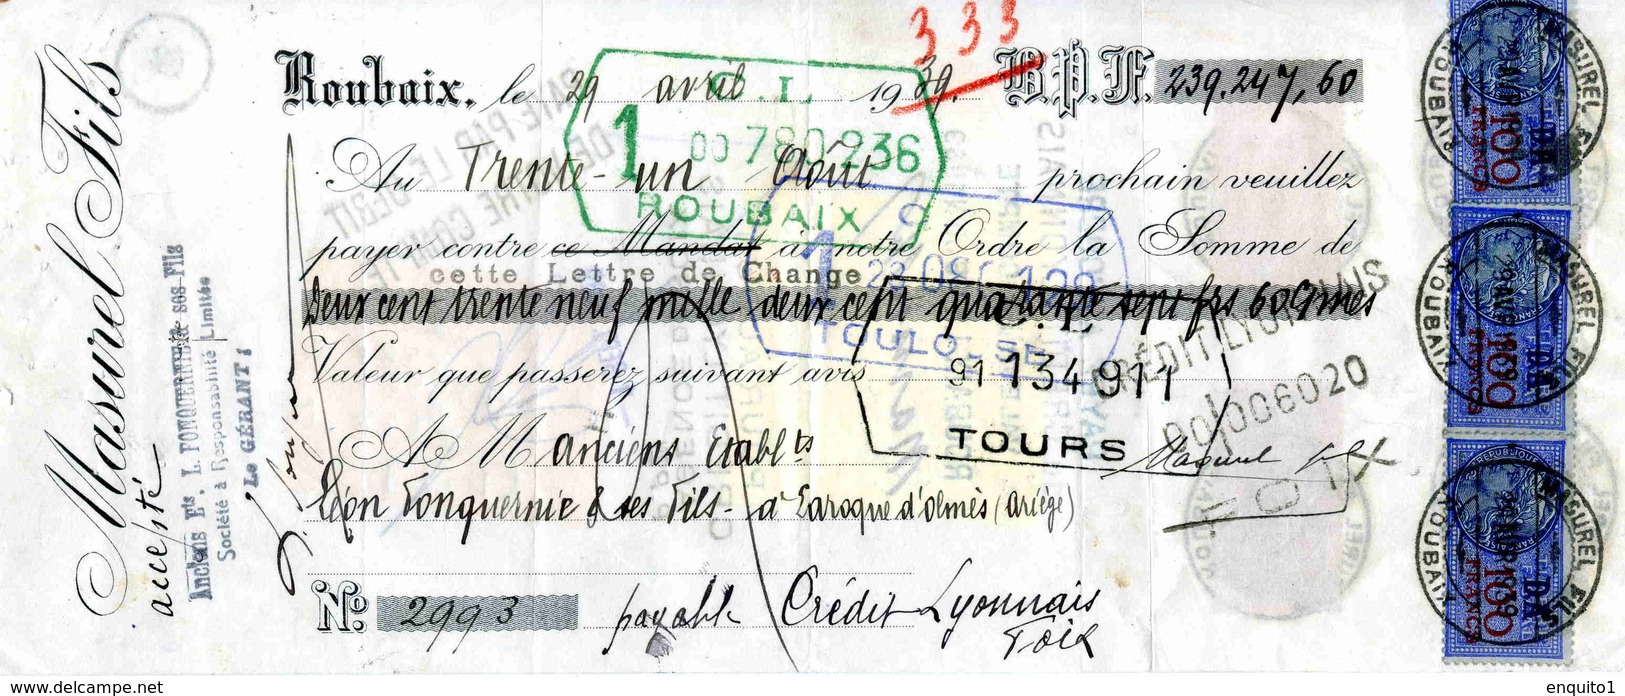 Masurel Fils
accepté
Anciens Ets. L. FONQUERNIE & ses Fils
Société à Responsabilité Limitée
Le GÉRANT:
333
Roubaix, le 29 avril 1939. B.P.F. 239.247,60
C.L
1 00780.236
ROUBAIX
Au Trente-un Août prochain veuillez
payer contre ce Mandat à notre Ordre la Somme de
cette Lettre de Change
Deux cent trente neuf mille deux cent quarante sept frs 60 cmes
TOULOUSE
Valeur que passerez suivant avis
C.L
91 134911
TOURS
CRÉDIT LYONNAIS
006020
FOIX
A M anciens Etablts
Léon Fonquernie & ses Fils - à Laroque d'olmès (Ariège)
Masurel fils
No. 2993 payable Crédit Lyonnais
Foix
100
FRANCS
MASUREL FILS
ROUBAIX
100
FRANCS
MASUREL FILS
ROUBAIX
100
FRANCS
MASUREL FILS
ROUBAIX
www.delcampe.net
enquito1